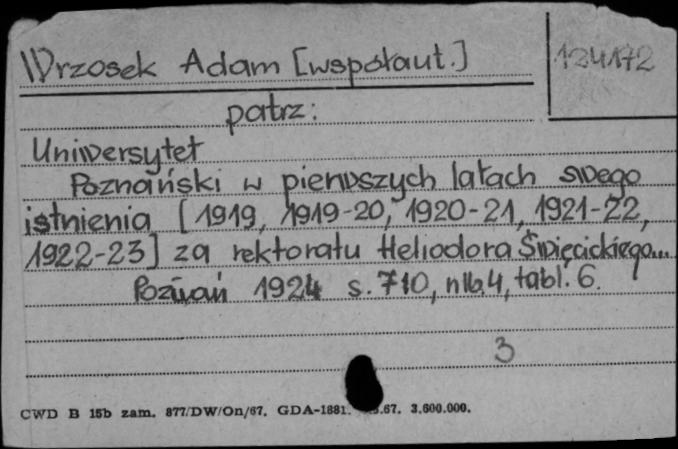 Wrzosek Adam [współaut.]
124172
patrz:
Uniwersytet
Poznański w pierwszych latach swego
istnienia [1919, 1919-20, 1920-21, 1921-22,
1922-23] za rektoratu Heliodora Święcickiego...
Poznań 1924 s. 710, nlb. 4, tabl. 6.
3
CWD B 15b zam. 877/DW/On/67. GDA-1881. .67. 3.600.000.